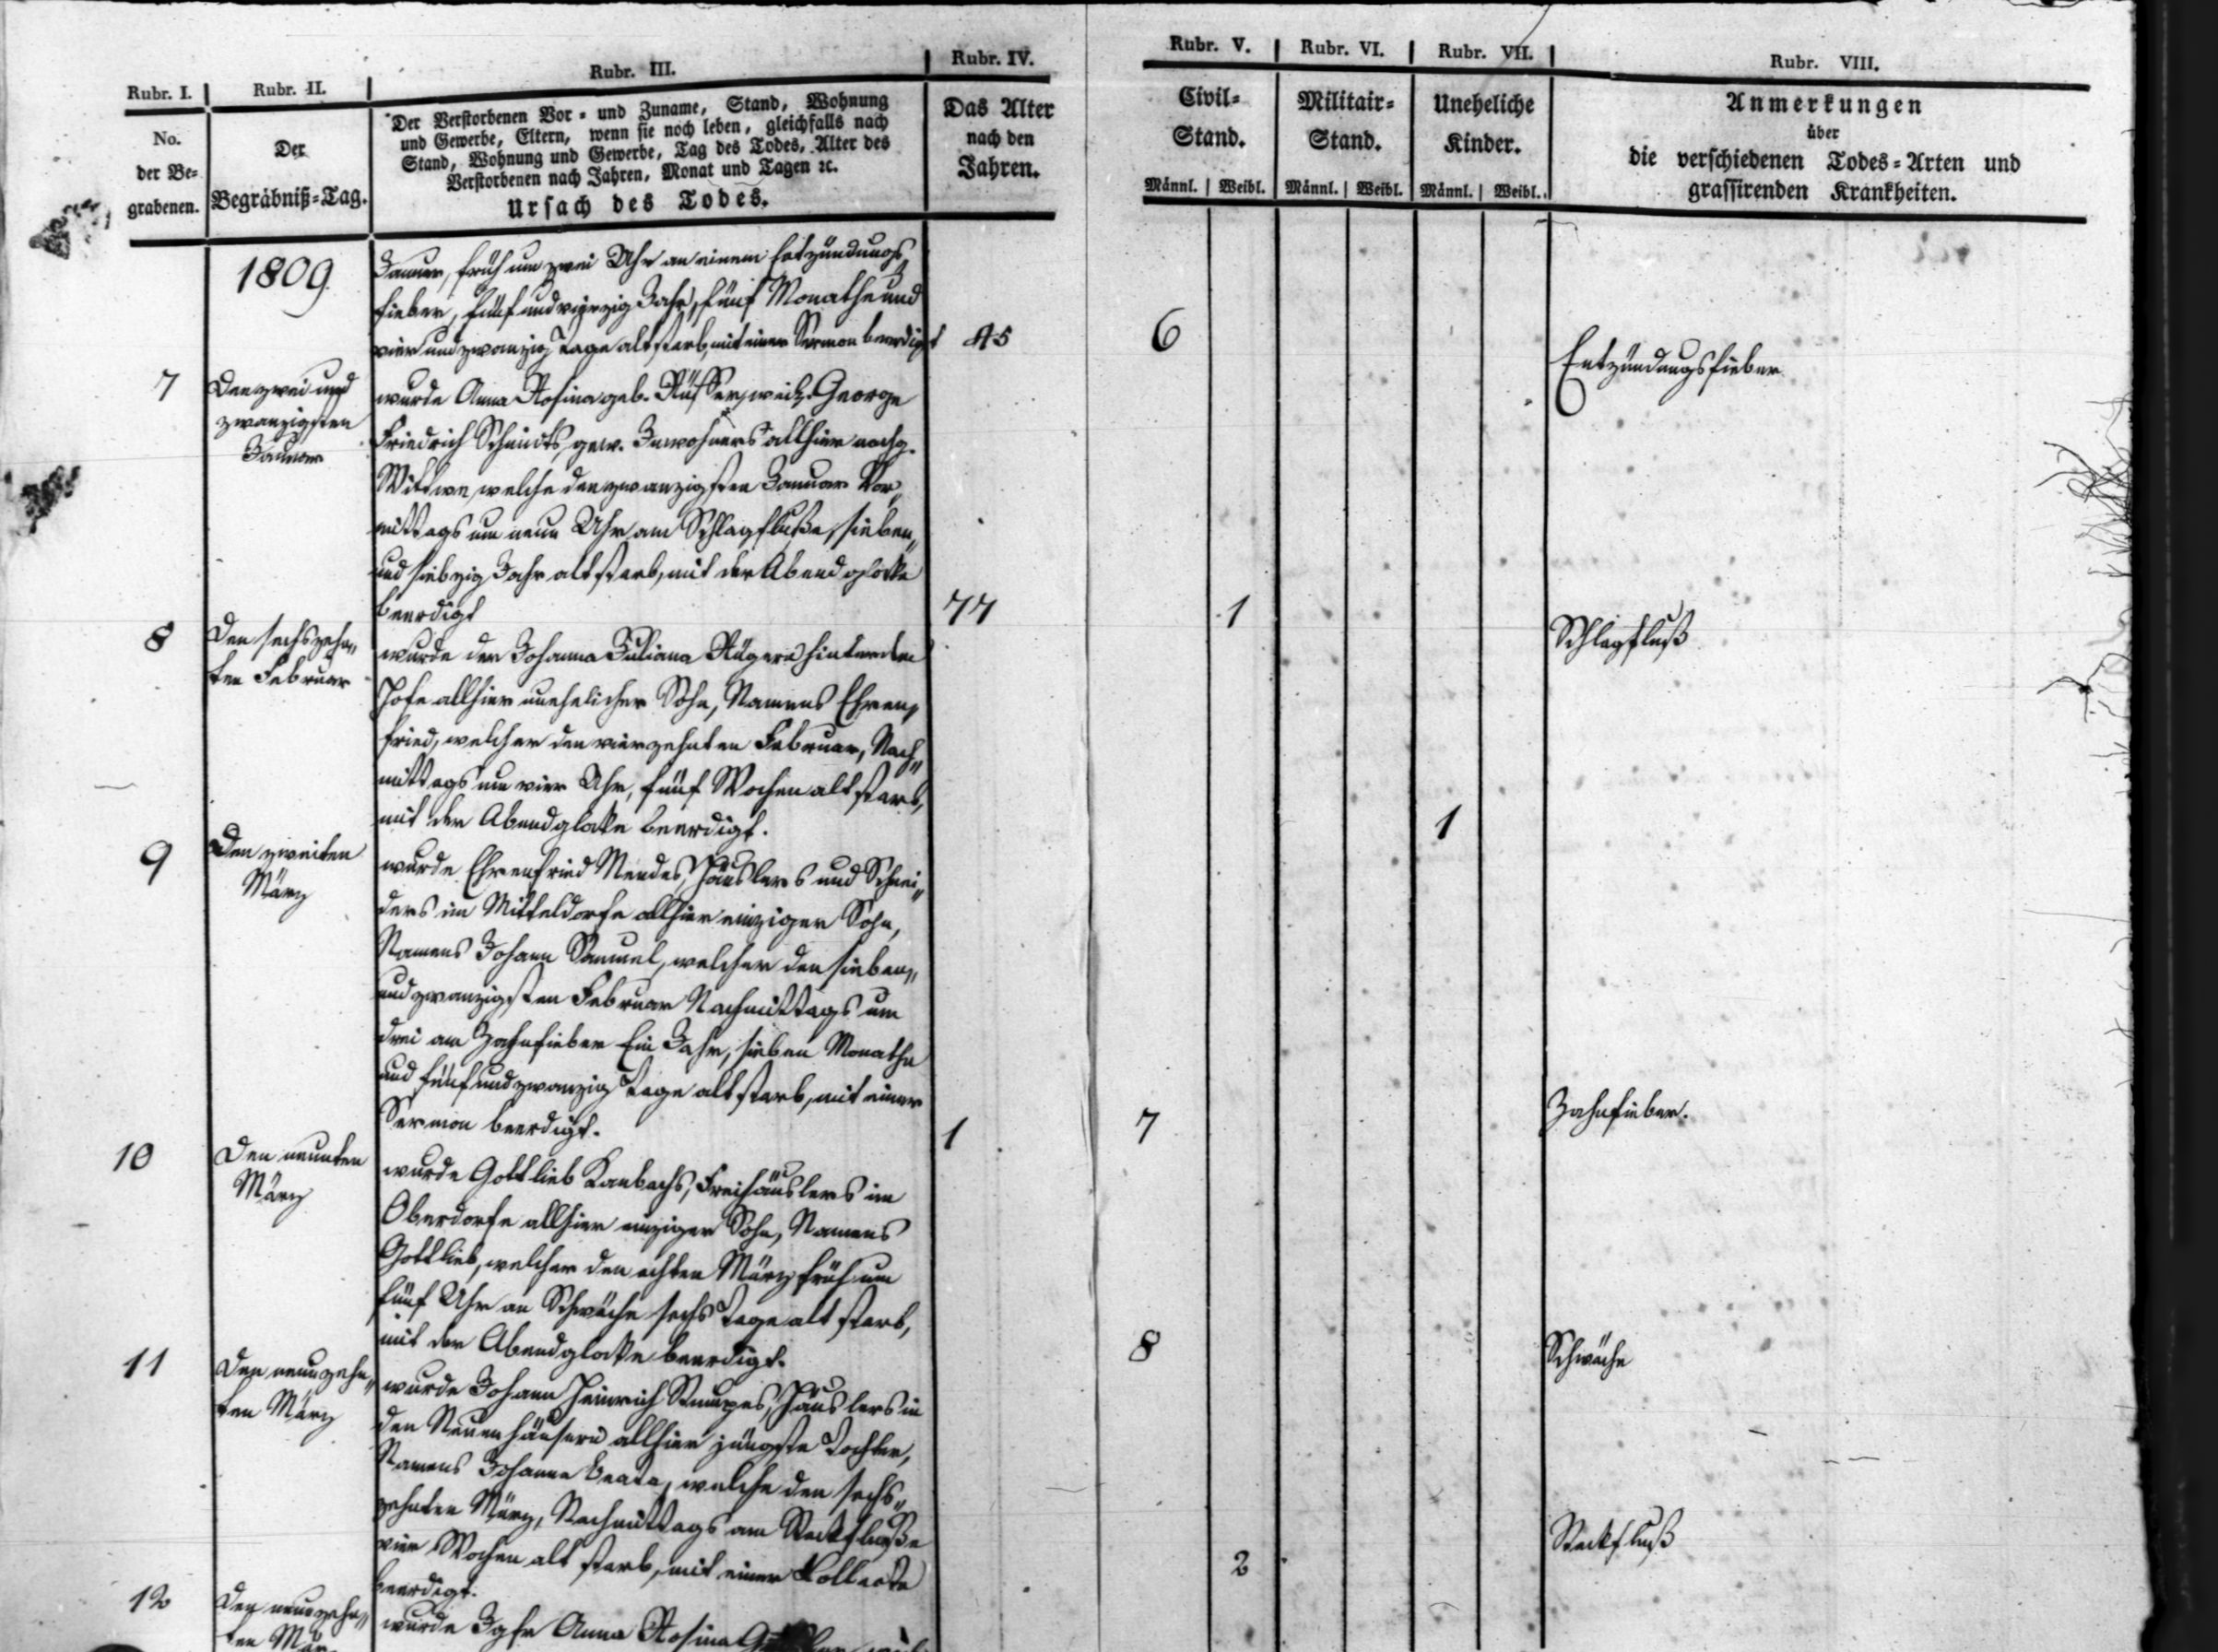 Rubr. I. Rubr. II. Rubr. III. Rubr. IV. Rubr. V. Rubr. VI. Rubr. VII. Rubr. VIII.
No.
der Be-
grabenen.
Der
Begräbniß-Tag.
Der Verstorbenen Vor- und Zuname, Stand, Wohnung
und Gewerbe, Eltern, wenn sie noch leben, gleichfalls nach
Stand, Wohnung und Gewerbe, Tag des Todes, Alter des
Verstorbenen nach Jahren, Monat und Tagen ꝛc.
Ursach des Todes.
Das Alter
nach den
Jahren.
Civil-
Stand.
Männl. Weibl.
Militair-
Stand.
Männl. Weibl.
Uneheliche
Kinder.
Männl. Weibl.
Anmerkungen
über
die verschiedenen Todes-Arten und
grassirenden Krankheiten.
1809
Januar, früh um zwei Uhr an einem Entzündungs„
fieber, fünf und vierzig Jahr, fünf Monathe und
vier und zwanzig Tage alt starb, mit einer Sermon beerdigt
45
6
Entzündungsfieber
7
Den zwei und
zwanzigsten
Januar
wurde Anna Rosina geb. weil. George
Friedrich Schmidts, gew. Inwohners allhier nachg.
Wittwe, welche den zwanzigsten Januar Vor„
mittags um neun Uhr am Schlagfluße, sieben„
und siebzig Jahr alt starb, mit der Abendglocke
beerdigt
77
1
Schlagfluß
8
Den sechszehn„
ten Februar
wurde der Johanna Juliana hinter dem
Hofe allhier unehelicher Sohn, Namens Ehren„
fried, welcher den vierzehnten Februar, Nach„
mittags um vier Uhr, fünf Wochen alt starb,
mit der Abendglocke beerdigt.
1
9
Den zweiten
März
wurde Ehrenfried Mendes, Häuslers und Schnei„
ders im Mitteldorfe allhier einziger Sohn,
Namens Johann Samuel, welcher den sieben„
und zwanzigsten Februar Nachmittags um
drei am Zahnfieber Ein Jahr, sieben Monathe
und fünf und zwanzig Tage alt starb, mit einer
Sermon beerdigt.
1
7
Zahnfieber.
10
Den neunten
März
wurde Gottlieb Kambachs, Freihäuslers im
Oberdorfe allhier einziger Sohn, Namens
Gottlieb, welcher den achten März früh um
fünf Uhr an Schwäche sechs Tage alt starb,
mit der Abendglocke beerdigt.
8
Schwäche
11
Den neunzehn„
ten März
wurde Johann Heinrich Häuslers in
den Neuenhäusern allhier jüngste Tochter,
Namens Johanne Beata, welche den sechs„
zehnten März, Nachmittags am Steckfluße
vier Wochen alt starb, mit einer Collecte
beerdigt.
2
Steckfluß
12
Den neunzehn„
ten
wurde Jgfr Anna Rosina